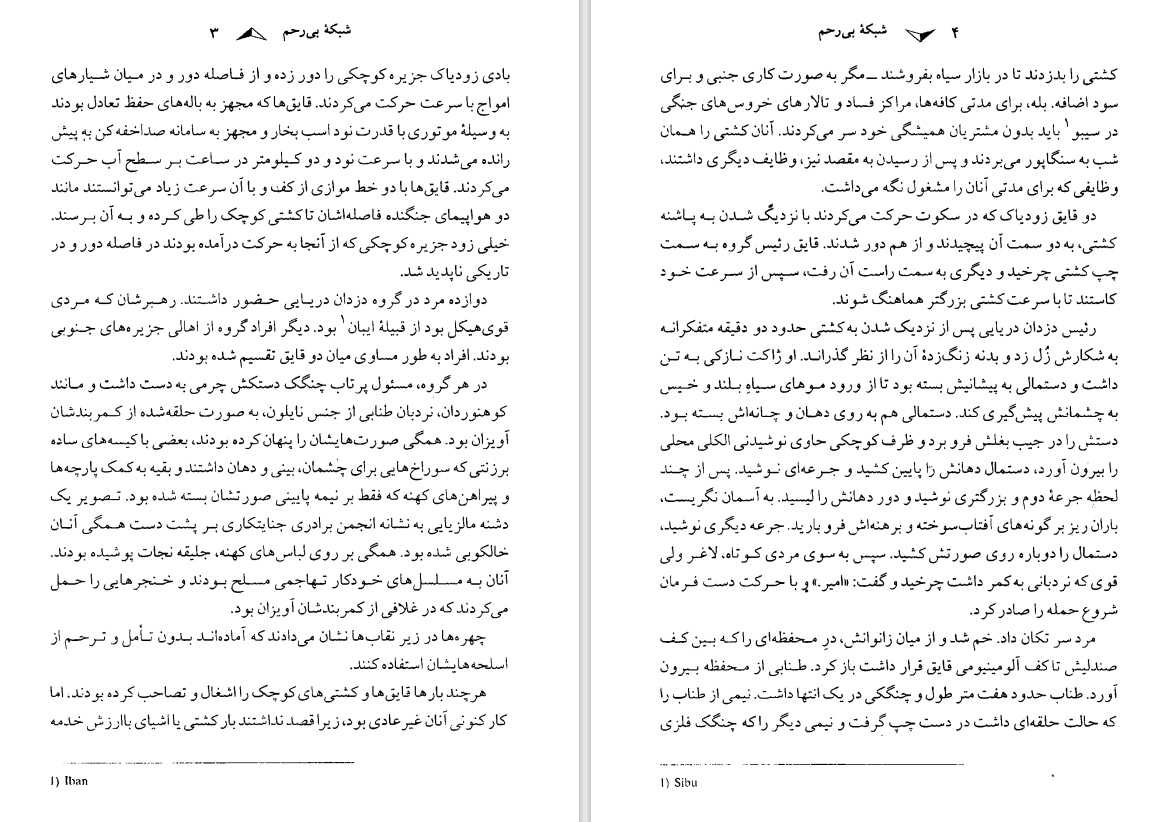 شبکهٔ بی‌رحم ۳
بادی زودیاک جزیره کوچکی را دور زده و از فاصله دور و در میان شیارهای
امواج با سرعت حرکت می‌کردند. قایق‌ها که مجهز به باله‌های حفظ تعادل بودند
به وسیلهٔ موتوری با قدرت نود اسب بخار و مجهز به سامانه صداخفه‌کن به پیش
رانده می‌شدند و با سرعت نود و دو کیلومتر در ساعت بر سطح آب حرکت
می‌کردند. قایق‌ها با دو خط موازی از کف و با آن سرعت زیاد می‌توانستند مانند
دو هواپیمای جنگنده فاصله‌اشان تا کشتی کوچک را طی کرده و به آن برسند.
خیلی زود جزیره کوچکی که از آنجا به حرکت درآمده بودند در فاصله دور و در
تاریکی ناپدید شد.
دوازده مرد در گروه دزدان دریایی حضور داشتند. رهبرشان که مردی
قوی‌هیکل بود از قبیلهٔ ایبان۱ بود. دیگر افراد گروه از اهالی جزیره‌های جنوبی
بودند. افراد به طور مساوی میان دو قایق تقسیم شده بودند.
در هر گروه، مسئول پرتاب چنگک دستکش چرمی به دست داشت و مانند
کوهنوردان، نردبان طنابی از جنس نایلون، به صورت حلقه‌شده از کمربندشان
آویزان بود. همگی صورت‌هایشان را پنهان کرده بودند، بعضی با کیسه‌های ساده
برزنتی که سوراخ‌هایی برای چشمان، بینی و دهان داشتند و بقیه به کمک پارچه‌ها
و پیراهن‌های کهنه که فقط بر نیمه پایینی صورتشان بسته شده بود. تصویر یک
دشنه مالزیایی به نشانه انجمن برادری جنایتکاری بر پشت دست همگی آنان
خالکوبی شده بود. همگی بر روی لباس‌های کهنه، جلیقه نجات پوشیده بودند.
آنان به مسلسل‌های خودکار تهاجمی مسلح بودند و خنجرهایی را حمل
می‌کردند که در غلافی از کمربندشان آویزان بود.
چهره‌ها در زیر نقاب‌ها نشان می‌دادند که آماده‌اند بدون تأمل و ترحم از
اسلحه‌هایشان استفاده کنند.
هرچند بارها قایق‌ها و کشتی‌های کوچک را اشغال و تصاحب کرده بودند، اما
کار کنونی آنان غیرعادی بود، زیرا قصد نداشتند بار کشتی یا اشیای باارزش خدمه
1) Iban
شبکهٔ بی‌رحم ۴
کشتی را بدزدند تا در بازار سیاه بفروشند ــ مگر به صورت کاری جنبی و برای
سود اضافه. بله، برای مدتی کافه‌ها، مراکز فساد و تالارهای خروس‌های جنگی
در سیبو۱ باید بدون مشتریان همیشگی خود سر می‌کردند. آنان کشتی را همان
شب به سنگاپور می‌بردند و پس از رسیدن به مقصد نیز، وظایف دیگری داشتند،
وظایفی که برای مدتی آنان را مشغول نگه می‌داشت.
دو قایق زودیاک که در سکوت حرکت می‌کردند با نزدیک شدن به پاشنه
کشتی، به دو سمت آن پیچیدند و از هم دور شدند. قایق رئیس گروه به سمت
چپ کشتی چرخید و دیگری به سمت راست آن رفت، سپس از سرعت خود
کاستند تا با سرعت کشتی بزرگتر هماهنگ شوند.
رئیس دزدان دریایی پس از نزدیک شدن به کشتی حدود دو دقیقه متفکرانه
به شکارش زُل زد و بدنه زنگ‌زدهٔ آن را از نظر گذراند. او ژاکت نازکی به تن
داشت و دستمالی به پیشانیش بسته بود تا از ورود موهای سیاهِ بلند و خیس
به چشمانش پیش‌گیری کند. دستمالی هم به روی دهان و چانه‌اش بسته بود.
دستش را در جیب بغلش فرو برد و ظرف کوچکی حاوی نوشیدنی الکلی محلی
را بیرون آورد، دستمال دهانش را پایین کشید و جرعه‌ای نوشید. پس از چند
لحظه جرعهٔ دوم و بزرگتری نوشید و دور دهانش را لیسید. به آسمان نگریست،
باران ریز بر گونه‌های آفتاب‌سوخته و برهنه‌اش فرو بارید. جرعه دیگری نوشید،
دستمال را دوباره روی صورتش کشید. سپس به سوی مردی کوتاه، لاغر ولی
قوی که نردبانی به کمر داشت چرخید و گفت: «امیر.» و با حرکت دست فرمان
شروع حمله را صادر کرد.
مرد سر تکان داد. خم شد و از میان زانوانش، درِ محفظه‌ای را که بین کف
صندلیش تا کف آلومینیومی قایق قرار داشت باز کرد. طنابی از محفظه بیرون
آورد. طناب حدود هفت متر طول و چنگکی در یک انتها داشت. نیمی از طناب را
که حالت حلقه‌ای داشت در دست چپ گرفت و نیمی دیگر را که چنگک فلزی
1) Sibu